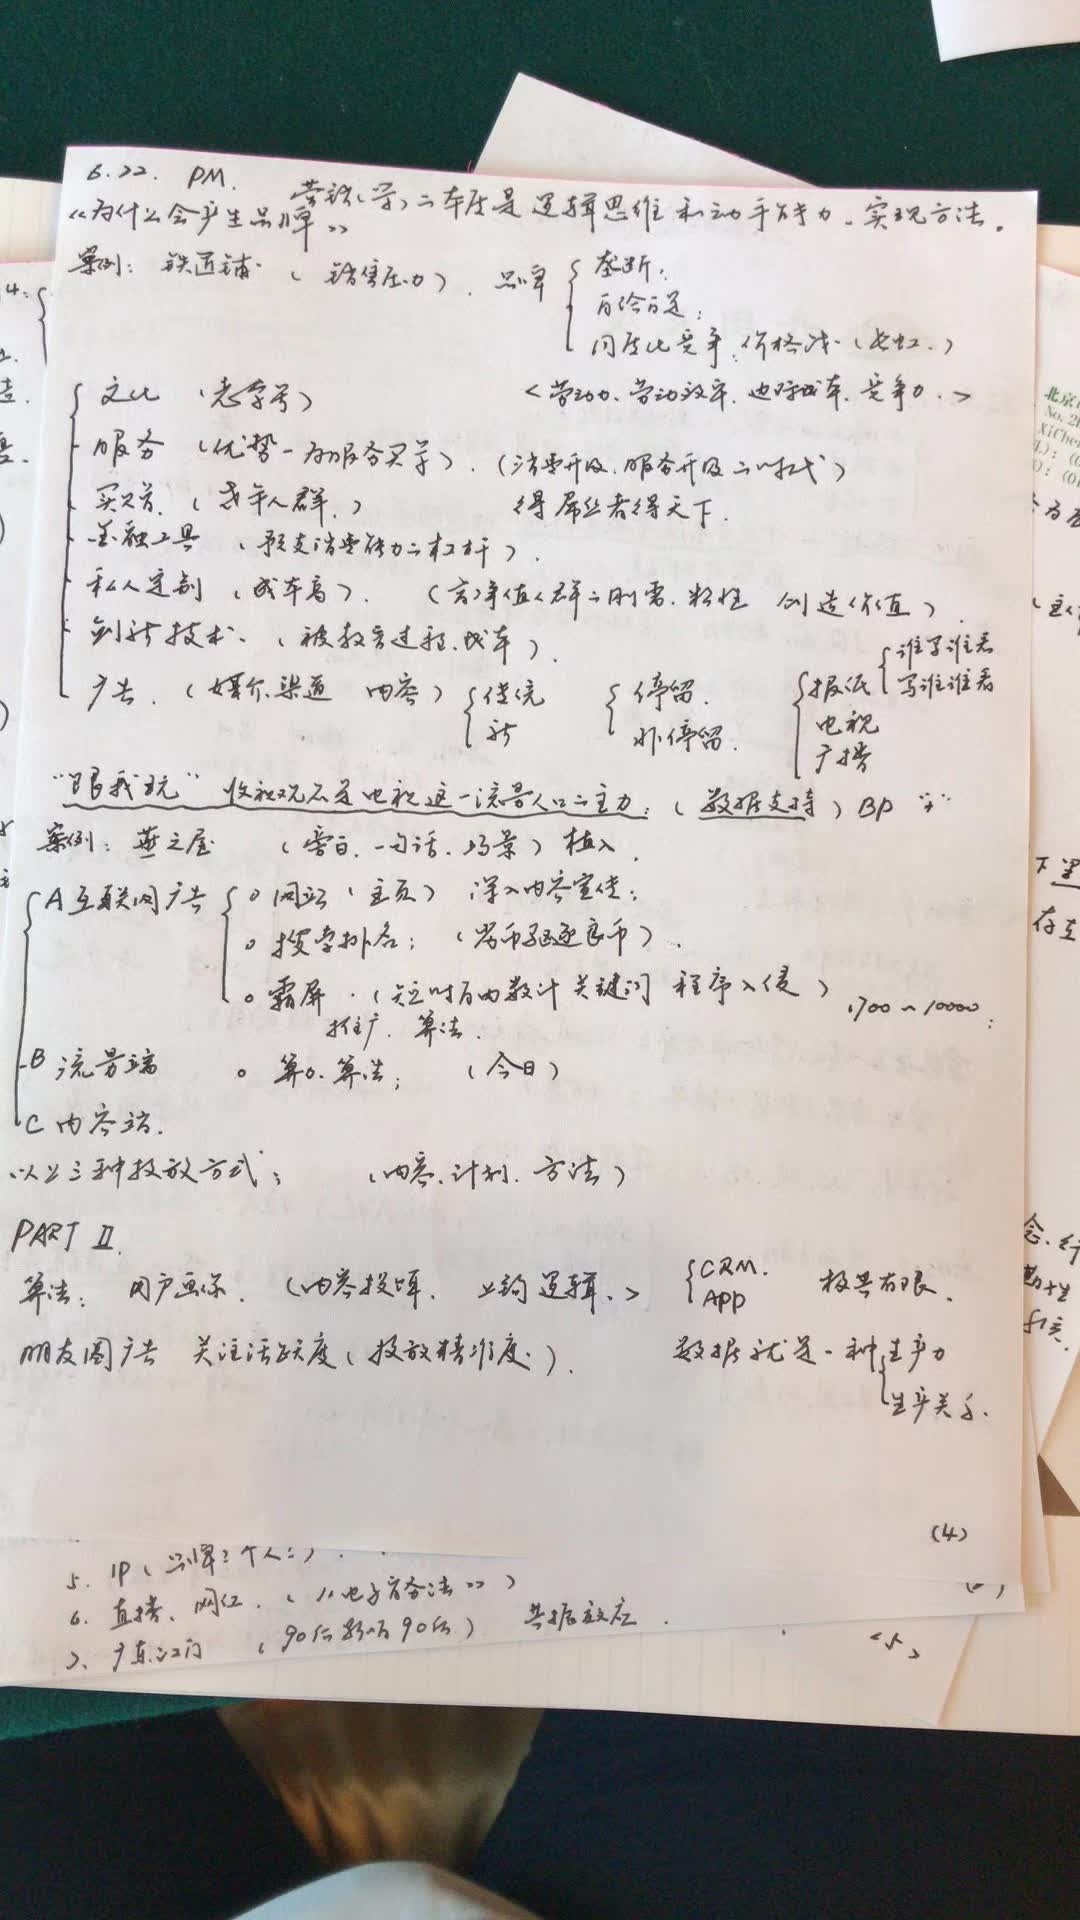 6.22. PM. 营销(学)二本质是逻辑思维和动手能力。实现方法。
《为什么会产生品牌》
案例：铁匠铺 (销售压力). 品牌 { 垄断；
自给自足；
同质化竞争、价格战（长虹.）
{ 文化 (老字号) <劳动力、劳动效率、边际成本、竞争力.>
服务 (优势-为服务买单). (消费升级、服务升级二时代)
买赠. (老年人群.) 得屌丝者得天下.
金融工具 (预支消费能力二杠杆).
私人定制 (成本高). (高净值人群二刚需、粘性 创造价值)
创新技术. (被教育过程.成本).
广告. (媒介、渠道 内容) { 传统 新 { 停留. 非停留. { 报纸 { 谁写谁看 写谁谁看
电视
广播
"跟我玩" 收视观众是电视这一流量入口二主力；(数据支持) BP "+"
案例：燕之屋 (旁白、一句话、场景) 植入.
{ A 互联网广告 { o 网站 (主页) 深入内容宣传；
o 搜索排名；(劣币驱逐良币).
o 霸屏. (短时百万数计 关键词 程序入侵) 1700~10000；
推广、算法.
B 流量端 o 算力、算法； (今日)
C 内容端.
以上三种投放方式； (内容、计划、方法)
PART II.
算法：用户画像. (内容投喂、上钩逻辑.) { CRM. APP 极其有限.
朋友圈广告 关注活跃度 (投放精准度.). 数据就是一种 { 生产力
生产关系.
(4)
5. IP (品牌二个人二).
6. 直播、网红. (《电子商务法》)
7. (90后影响90后) 共振效应.
<5>
北京
No. 2
XiChe